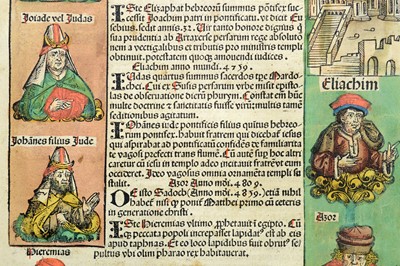 Joiade vel Judas
Johānes filius Jude
Hieremias
Iste Elizaphat hebreorū summus pōtifex suc
cessit Joachim patri in pontificatu. vt dicit Eu
sebius. sedit annis .32. Uir tanto honore dignus q̄
sua prudentia ab Artaxerse persarum rege absolutio
nem a vectigalibus et tributis pro ministris templi
obtinuit. potestatem quoq̄ amouendi iudices.
Eliachim anno mundi. 4759.
Iudas quartus summus sacerdos tpe Mardo
chei. Ex Susis persarum vrbe misit edictum
de obseruatione dierū phurym. Constat em̄ hūc
multe doctrine & sanctitatis fuisse virū; multis tamē
seditionibus agitatum.
Iohānes iudē pontificis filius quītus hebreorū
pontifex. habuit fratrem qui dicebat̄ iesus
qui aspirabat ad pontificatū confidēs ex familiarita
te vagosi prefecti trans flumē. Cū autē sup hoc alter
caret̄ cū iesu in templo adeo incitauit fratrē vt eum
occideret. Ipso vagosus omnia ornamēta templi su
stulit. Azor Anno mdi. 4809.
O Este Sadoch (Anno mdi. 4839.) etiā nihil
habet̄ nisi q̄ ponit̄ Mattheo primo cū ceteris
in generatione christi.
Iste Hieremias vltimo, ꝓphetauit i egypto. Cū
q̄ peccata populi increpasset lapidat̄ est ab eis
apud taphnas. Et eo loco lapidibus suit obrut̄ se/
pultus vbi olim pharao rex habitauerat.
Eliachim
Azor